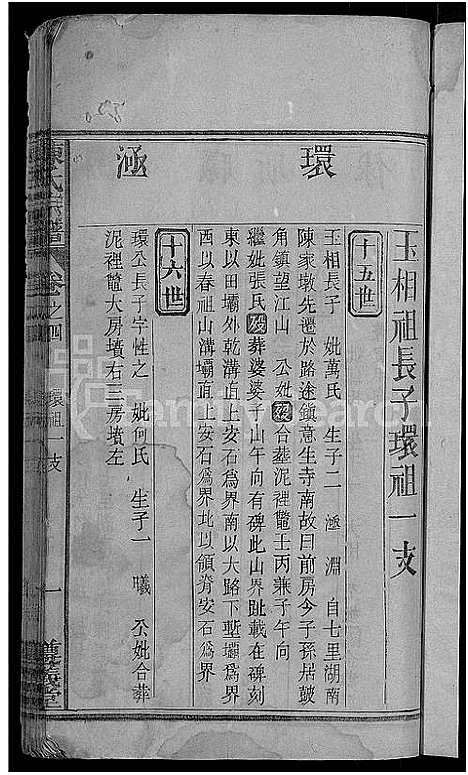 玉相祖長子環祖一支
環
十五世
玉相長子 妣萬氏 生子二 涵 淵 自七里湖南
陳家墩先遷於路途鎮意生寺南故曰前房今子孫居皷
角鎮望江山 公妣歿合葬泥裡鼈壬丙兼子午向
繼妣張氏歿葬婆婆子山午向有碑此山界趾載在碑刻
東以田壩外乾溝直上安石爲界南以大路下塹壩爲界
西以春祖山溝壩直上安石爲界北以領脊安石爲界
涵
十六世
環公長子字性之 妣何氏 生子一 曦 公妣合葬
泥裡鼈大房墳右三房墳左
陳氏宗譜 卷之四 環祖一支 一 義聚堂
FamilySearch